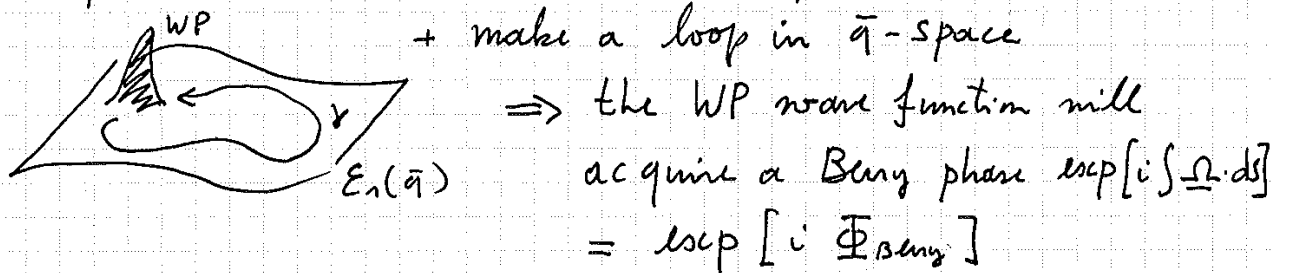 WP
+ make a loop in q̄-space
⇒ the WP wave function will
γ
acquire a Berry phase exp[i∫Ω·ds]
εₙ(q̄)
= exp [i Φ_Berry]